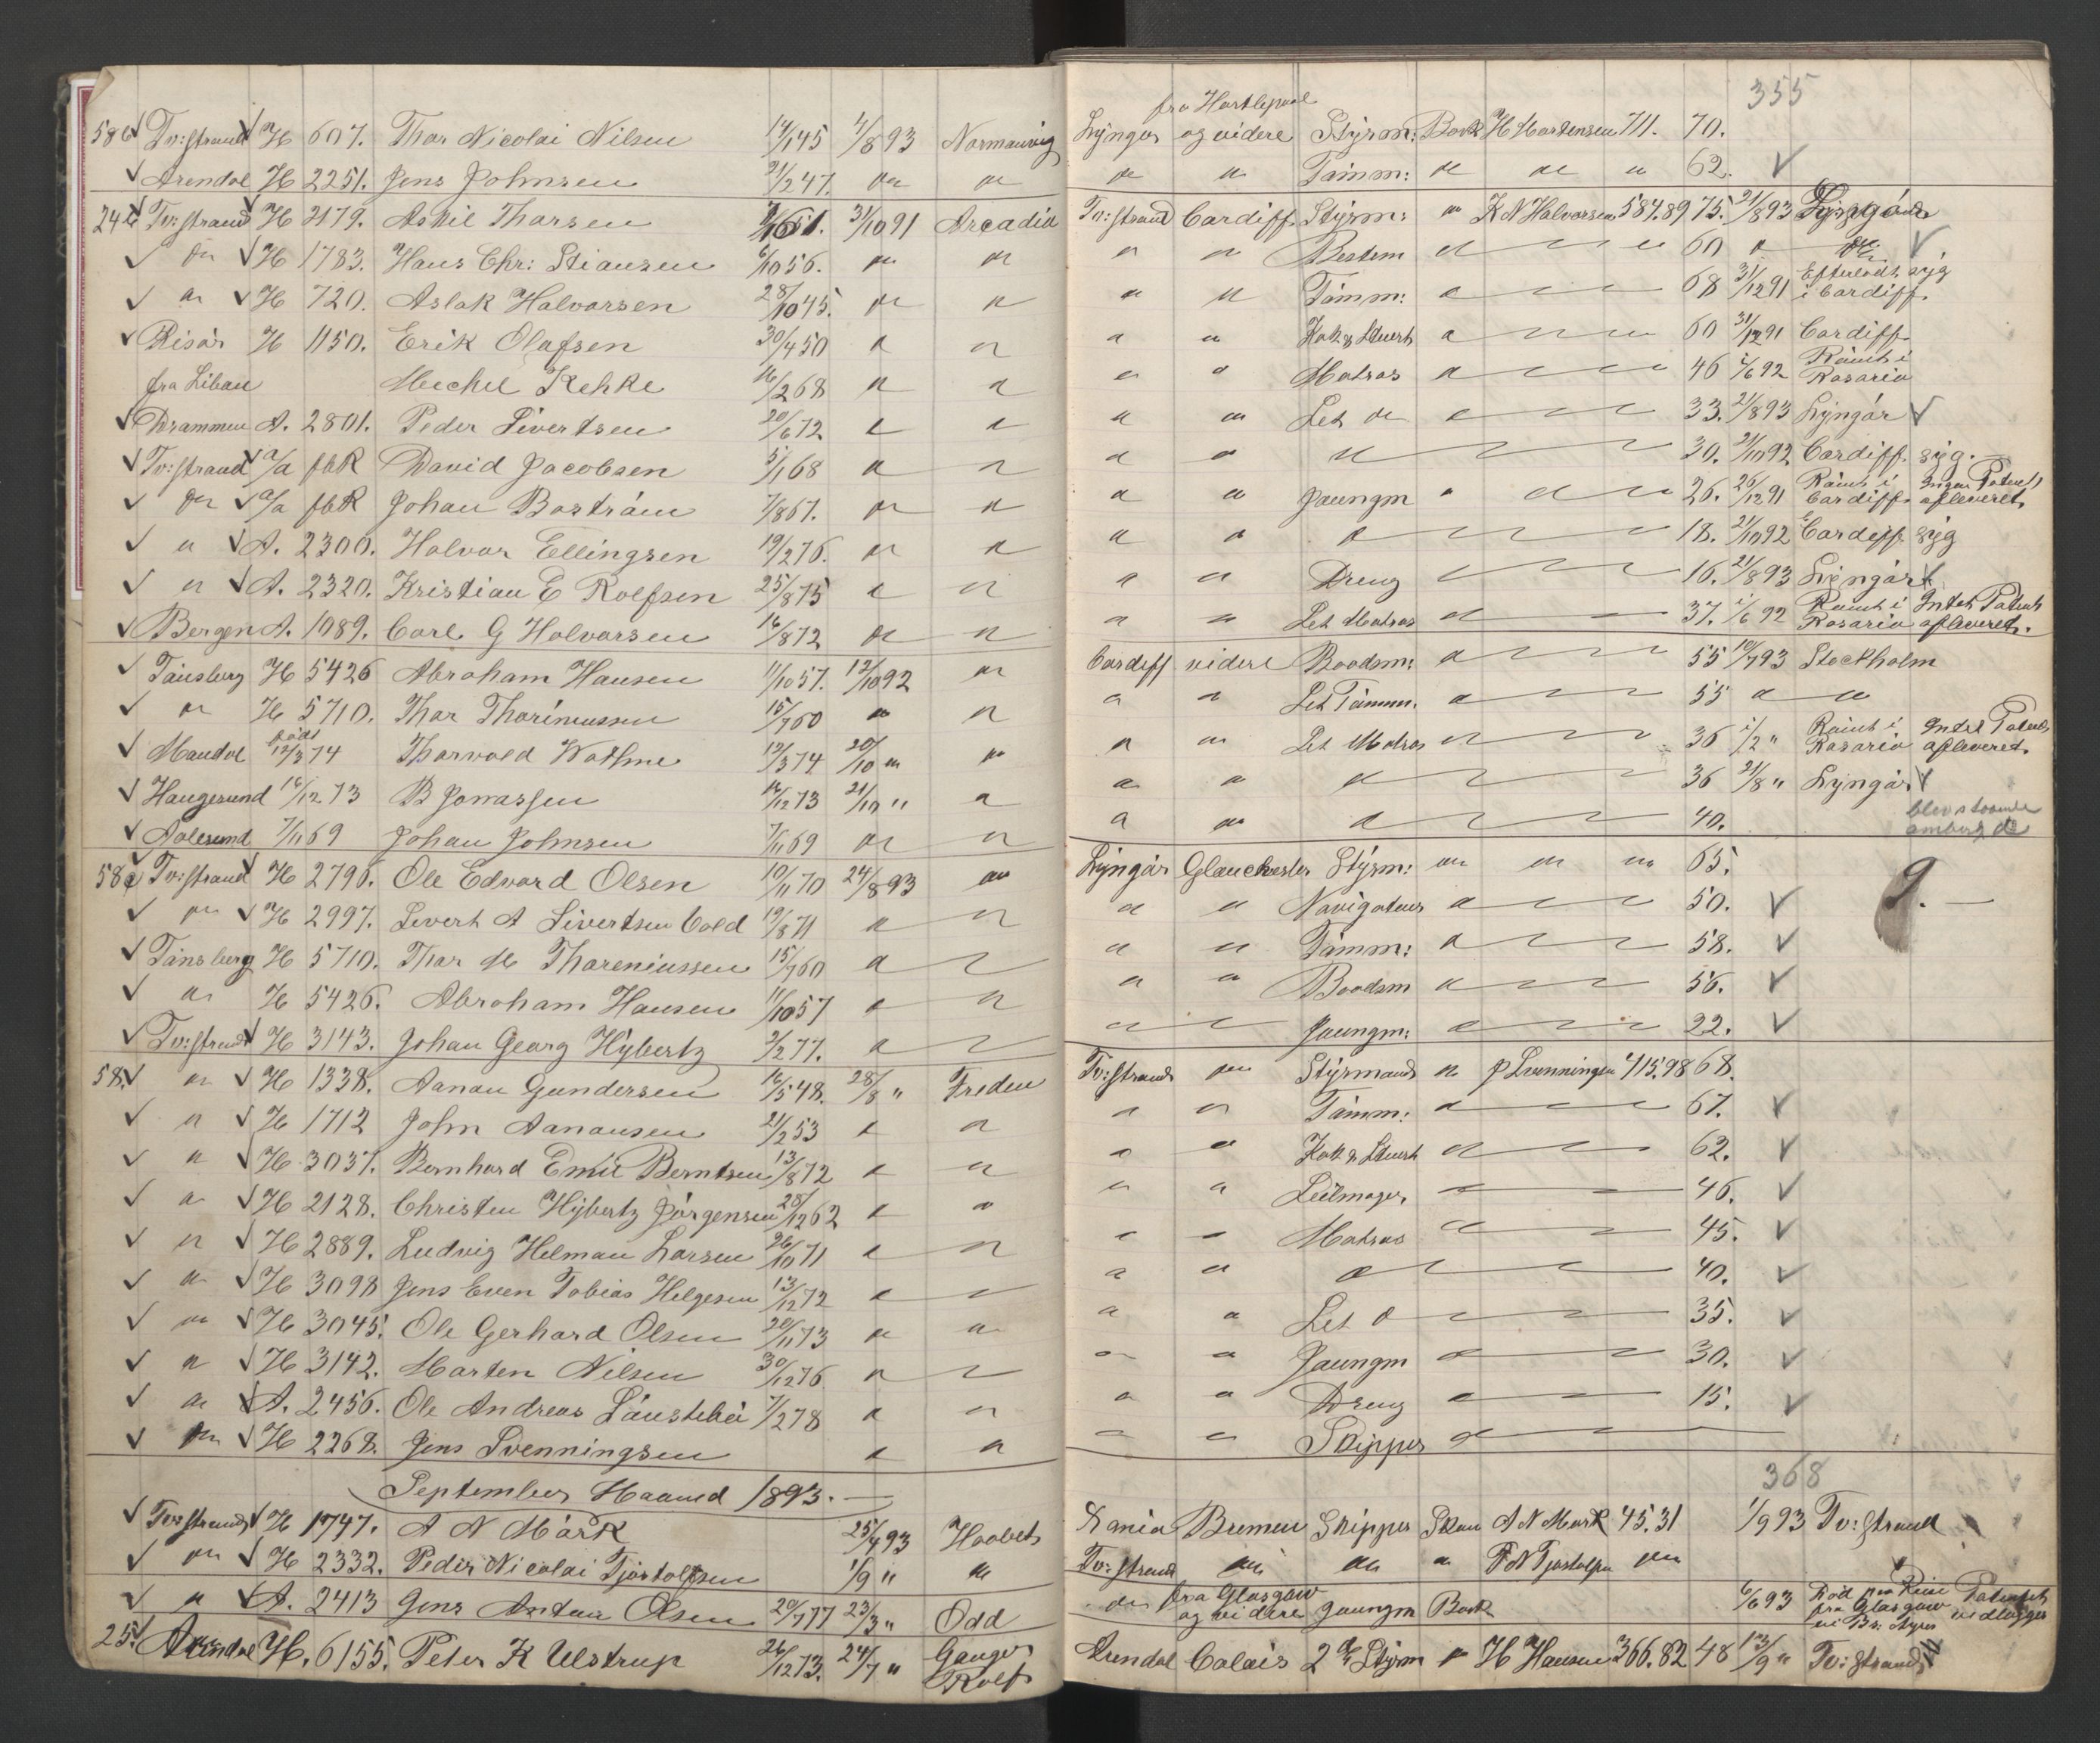 355
586 Tv:strand H 607. Thor Nicolai Nilsen 14/1 45 4/8 93 Normanvig Lyngør fra Hartlepool og videre Styrm: Bark H Mortensen 711. 70.
Arendal H 2251. Jens Johnsen 21/2 47. do do do do Tømm: do do do 62.
24 Tv:strand H 2179. Askil Thorsen 51. 31/10 91 Arcadia Tv:strand Cardiff Styrm: do K N Halvorsen 584.89 75. 21/8 93 Lyngør
do H 1783. Hans Chr: Stiansen 6/10 56. do do do do Bestm do 60 do do
do H 720. Aslak Halvorsen 28/10 45. do do do do Tømm: do 68 31/12 91 Efterladt syg i Cardiff.
Risør H 1150. Erik Olafsen 30/4 50 do do do do Kok & Stuert do 60 31/12 91 Cardiff
fra Libau Mechel Kehke 16/2 68 do do do do Matros do 46 1/6 92 Rømt i Rosario
Drammen A. 2801. Peder Sivertsen 20/6 72 do do do do Let do do 33. 21/8 93 Lyngør
Tv:strand a/a fbR David Jacobsen 5/1 68 do do do do do 30. 21/10 92 Cardiff syg.
do a/a fbR Johan Boström 7/8 67. do do do do Jaungm do 26. 26/12 91 Rømt i Cardiff. Ingen Patent afleveret.
do A. 2300. Halvor Ellingsen 19/2 76. do do do do do 18. 21/10 92 Cardiff syg
do A. 2320. Kristian E Rolfsen 25/8 75 do do do do Dreng do 16. 21/8 93 Lyngør
Bergen A. 1089. Carl G Halvorsen 16/8 72 do do do do Let Matros do 37. 1/6 92 Rømt i Rosario Intet Patent afleveret.
Tønsberg H 5426 Abraham Hansen 11/10 57. 12/10 92 do Cardiff videre Baadsm: do 55 10/7 93 Stockholm
do H 5710. Thor Thorinussen 15/7 60 do do do do Let Tømm. do 55 do do
Mandal født 12/3 74 Thorvald Wathne 12/3 74 20/10 do do do do Let Matros do 36 1/2 " Rømt i Rosario Intet Patent afleveret.
Haugesund 16/12 73 B Jonassen 16/12 73 21/10 " do do do do 36 21/8 " Lyngør
Aalesund 7/11 69 Johan Johnsen 7/11 69 do do do do do 40. blev staaende ombord do
58 Tv:strand H 2796. Ole Edvard Olsen 10/11 70 24/8 93 do Lyngør Glauchester Styrm: do do do 65. 9.
do H 2997. Sivert A Sivertsen Vold 19/8 71 do do do do Navigateur do 50.
Tønsberg H 5710. Thor M Thoreniussen 15/7 60 do do do do Tømm: do 58.
do H 5426. Abraham Hansen 11/10 57 do do do do Baadsm do 56.
Tv:strand H 3143. Johan Georg Hybertz 2/2 77. do do do do Jaungm: do 22.
58. do H 1338. Aanon Gundersen 16/5 48. 28/8 " Freden Tv:strand do Styrmand do J Svenningsen 415.98 68.
do H 1712 John Aanonsen 21/2 53 do do do do Tømm: do 67.
do H. 3037. Bernhard Emil Berntsen 13/8 72 do do do do Kok & Stuert do 62.
do H 2128. Christen Hybertz Jørgensen 28/12 62 do do do do Seilmager do 46.
do H 2889. Ludvig Helman Larsen 26/10 71 do do do do Matros do 45.
do H 3098 Jens Even Tobias Helgesen 13/12 72 do do do do do 40.
do H 3045. Ole Gerhard Olsen 20/11 73 do do do do Let do 35.
do H 3142. Morten Nilsen 30/12 76 do do do do Jaungm do 30.
do A. 2456. Ole Andreas 7/2 78 do do do do Dreng do 15.
do H 2268. Jens Svenningsen do do do do Skipper do
September Maaned 1893. 368
Tv:strand H 1747. A N Mørk 25/7 93 Haabet Xania Bremen Skipper Skon A N Mørk 45.31 1/9 93 Tv:strand
do H 2332. Peder Nicolai Tjøstolfsen 1/9 " do Tv:strand do do do P N Tjøstolfsen do
do A. 2413 Jens Anton Olsen 20/7 77 23/3 " Odd do fra Glasgow og videre Jaungm Bark 6/6 93 Død paa Reise fra Glasgow til B: Ayres Patentet vedlagges
25. Arendal H. 6155. Peter K Ulstrup 26/12 73. 24/7 " Ganger Rolf Arendal Calais 2den Styrm do H Hansen 366.82 48 13/9 " Tv:strand